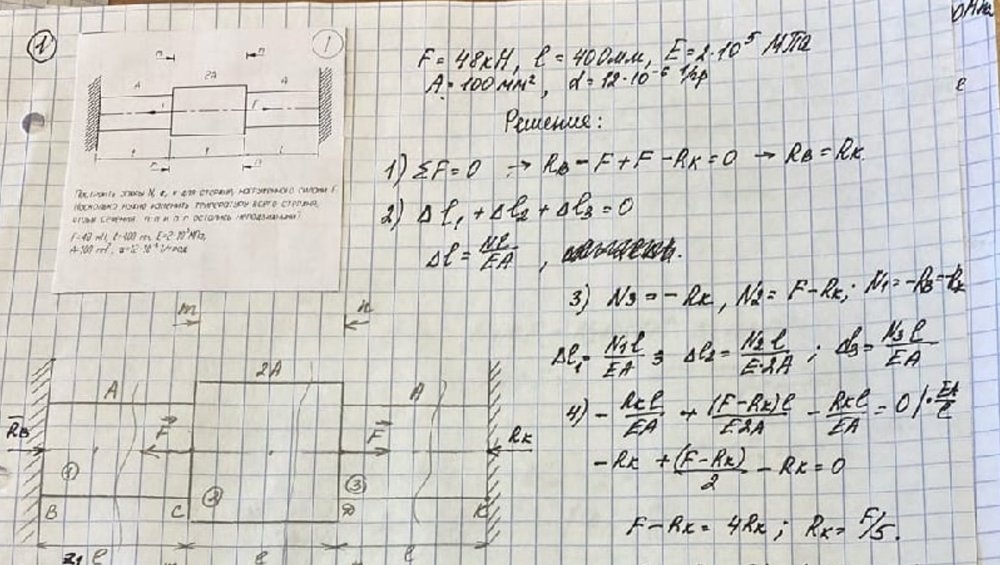 1
1
n
n
A
2A
A
F
l
l
l
n
n
Построить эпюры N, σ, для стержня, нагруженного силами F.
Насколько нужно изменить температуру всего стержня,
чтобы сечения и n-n остались неподвижными?
l=400 mm, E=2·10⁵МПа,
A=100 mm²,
F=48кН, l=400мм, E=2·10⁵ МПа
A=100мм², α=12·10⁻⁶ 1/гр
Решение:
1) ΣF=0 → RB-F+F-RK=0 → RB=RK.
2) Δl₁+Δl₂+Δl₃=0
Δl=Nl/EA,
3) N3=-RK, N2=F-RK; N1=-RB=-RK
Δl₁=N1l/EA; Δl₂=N2l/E·2A; Δl₃=N3l/EA
4) -RKl/EA+(F-RK)l/E2A-RKl/EA=0 |·EA/l
-RK+(F-RK)/2-RK=0
F-RK=4RK; RK=F/5.
m
n
A
2A
A
RB
F
F
RK
1
2
3
B
C
D
K
z₁
l
l
l